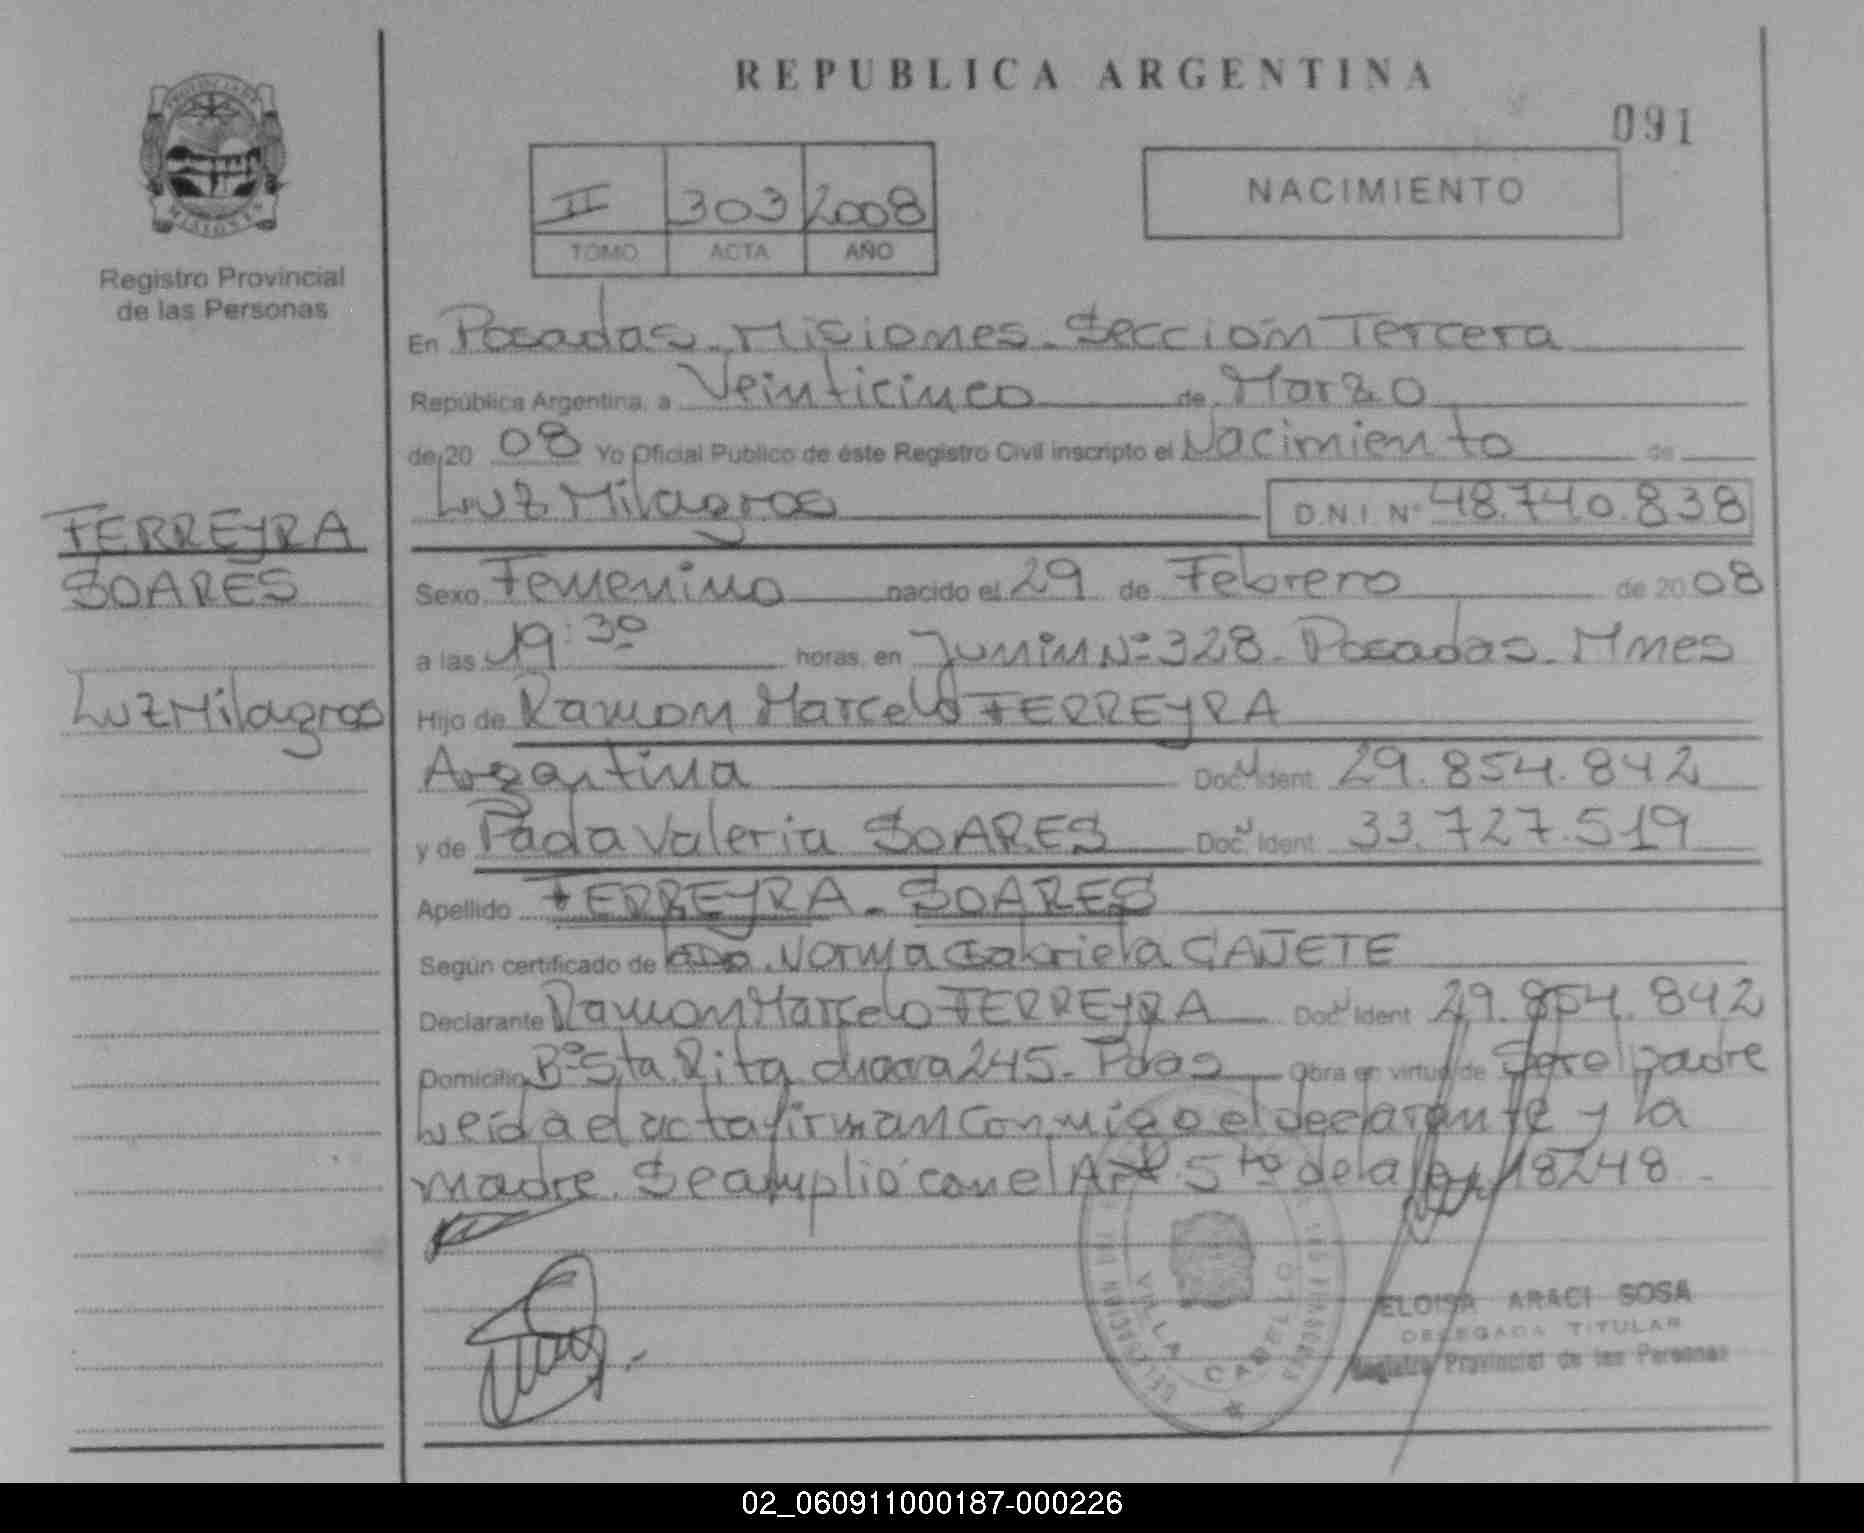 REPUBLICA ARGENTINA
091
II 303 2008
TOMO ACTA AÑO
NACIMIENTO
PROVINCIA DE
MISIONES
Registro Provincial
de las Personas
En Posadas - Misiones - Sección Tercera
República Argentina, a Veinticinco de Marzo
de 20 08 Yo Oficial Publico de éste Registro Civil inscripto el Nacimiento de
Luz Milagros D.N.I. Nº 48.740.838
FERREYRA
SOARES
Luz Milagros
Sexo Femenino nacido el 29 de Febrero de 20 08
a las 19:30 horas, en Junin Nº 328 - Posadas - Mnes
Hijo de Ramon Marcelo FERREYRA
Argentina Doc. Ident. 29.854.842
y de Paola Valeria SOARES Doc. Ident. 33.727.519
Apellido FERREYRA - SOARES
Según certificado de Norma Gabriela CAÑETE
Declarante Ramon Marcelo FERREYRA Doc. Ident 29.854.842
Domicilio Bº Sta. Rita chacra 245 - Pdas Obra en virtud de Ser el padre
Leida el acta firman conmigo el declarante y la
madre. Se amplió con el Art 5to de la Ley 18248 -
VILLA CABELLO
ELOISA ARACI SOSA
DELEGADA TITULAR
Registro Provincial de las Personas
02_060911000187-000226